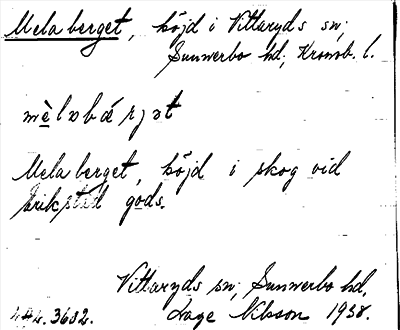 Mela berget, höjd i Vittaryds sn;
Sunnerbo hd; Kronob. l.
mèlɒbǽrjɘt
Mela berget, höjd i skog vid
Erikstad gods.
Vittaryds sn; Sunnerbo hd.
3632. Lage Nilsson 1938.